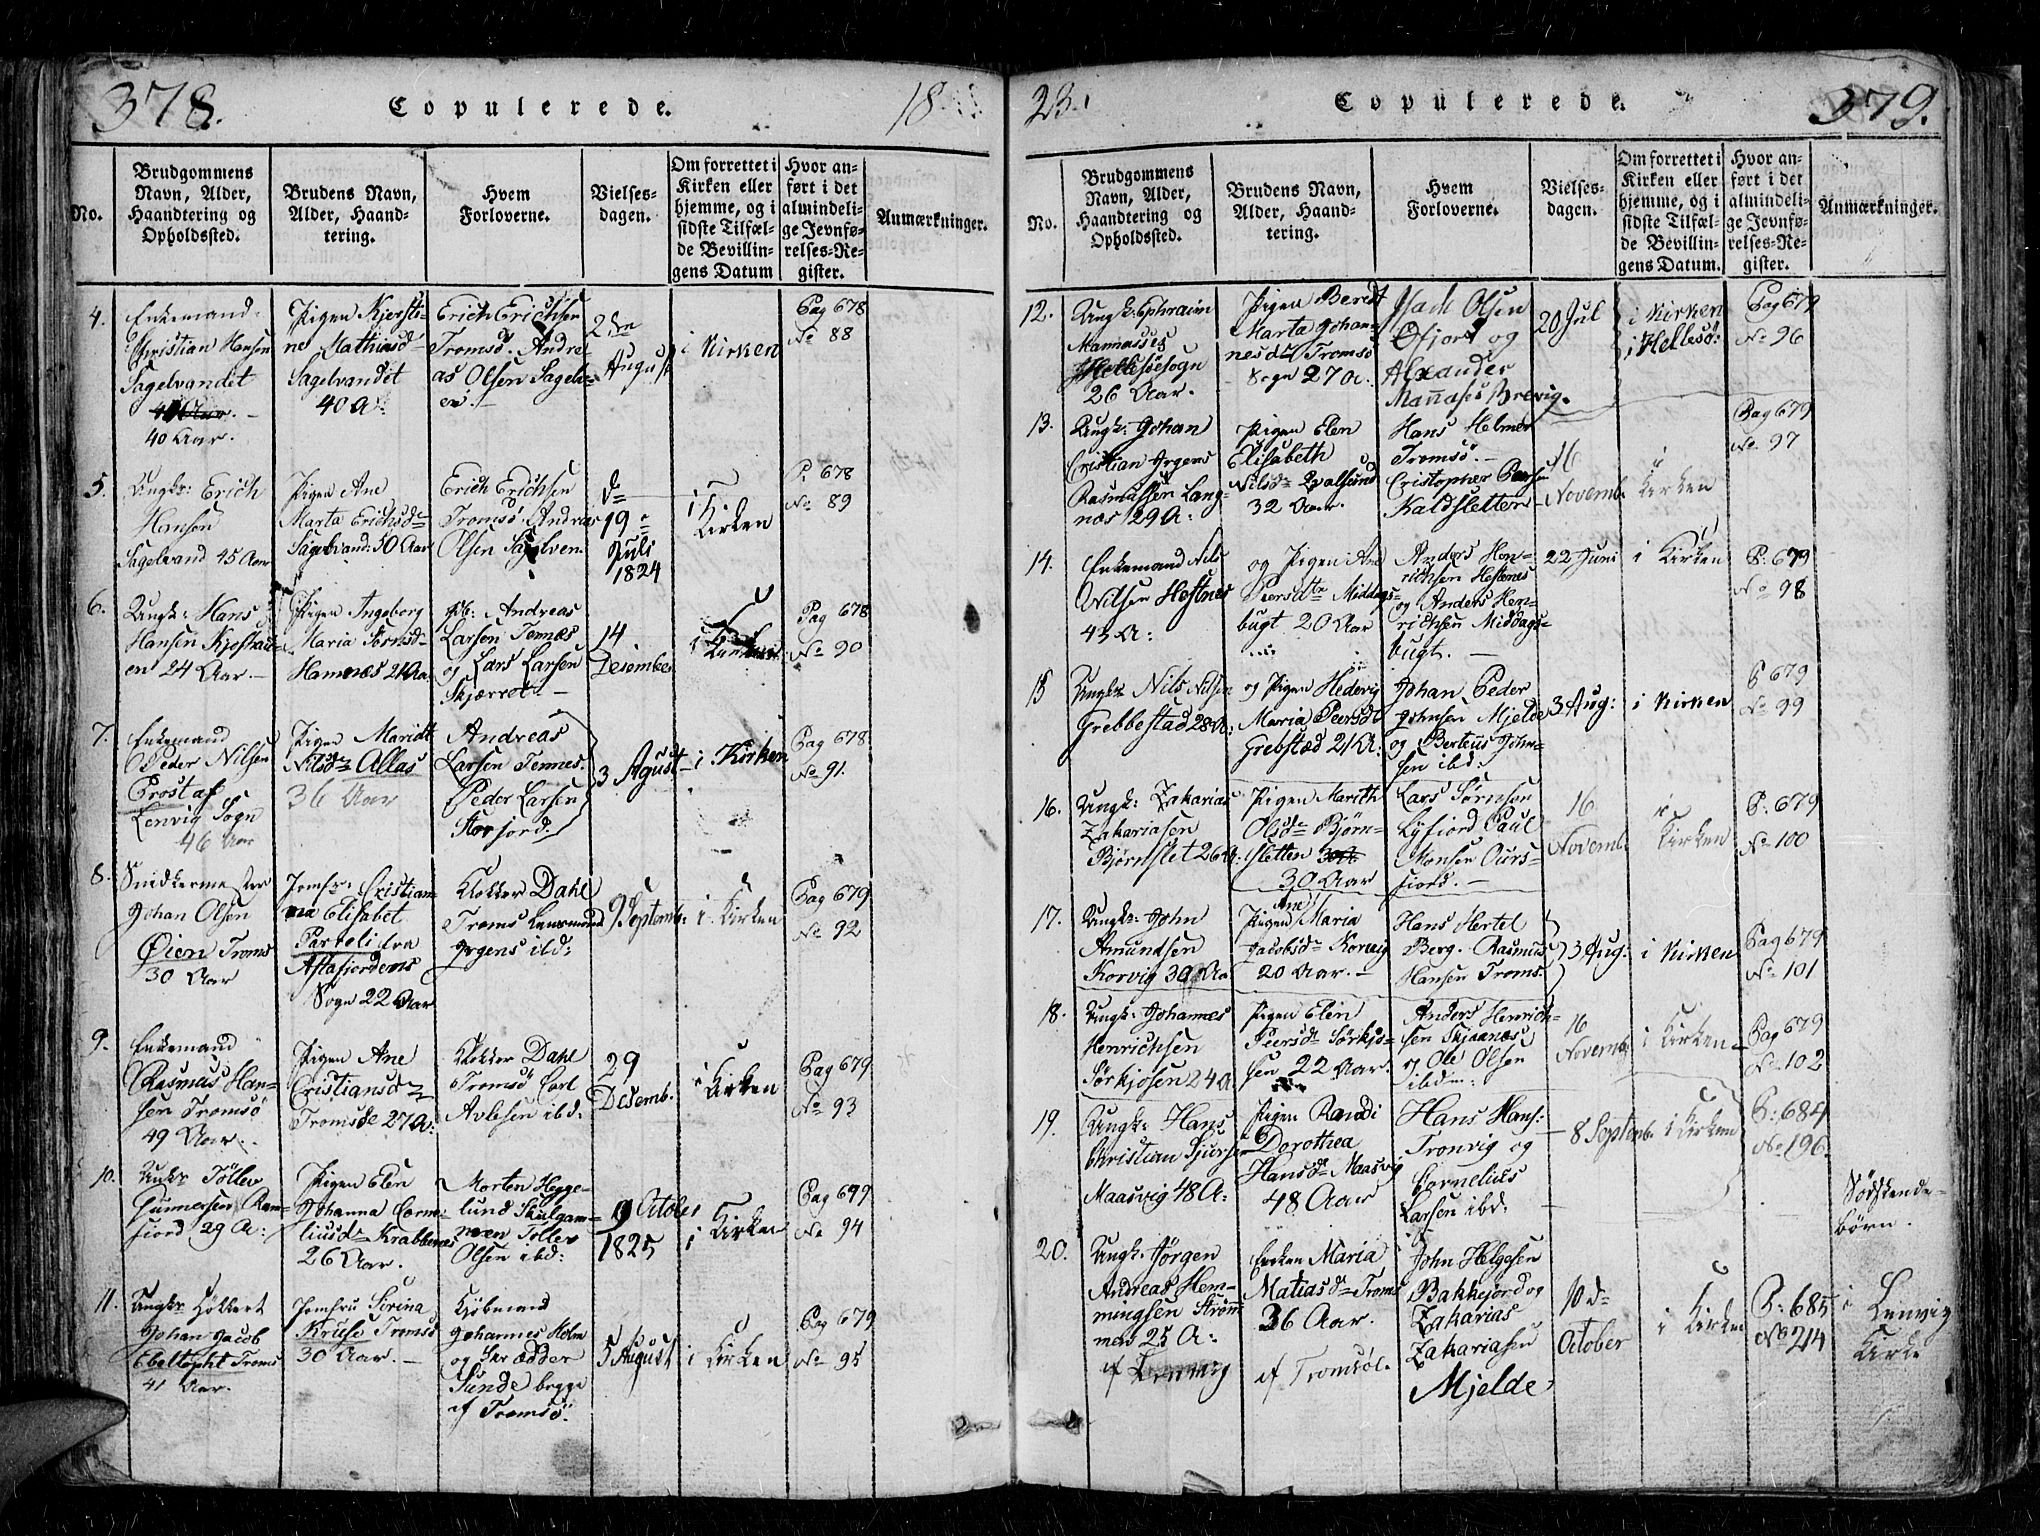 378.
Copulerede.
18
No.
Brudgommens Navn, Alder, Haandtering og Opholdssted.
Brudens Navn, Alder, Haandtering.
Hvem Forloverne.
Vielsesdagen.
Om forrettet i Kirken eller hjemme, og i sidste Tilfælde Bevillingens Datum
Hvor anført i det almindelige Jevnførelses-Register.
Anmærkninger.
4.
Enkemand
Christian Hansen
Sagelvandet
40 Aar.
Pigen Kjersti-
ne Mathiasd
Sagelvandet
40 A:
Erich Erichsen
Tromsö. Andre
as Olsen Sagelv-
en.
2den
August
i Kirken
Pag 678
No 88
5.
Ungk: Erich
Hansen
Sagelvand 45 Aar
Pigen Ane
Marta Erichsd
Sagelvand: 50 Aar
Erich Erichsen
Tromsö. Andreas
Olsen Sagelven.
d
19
Juli
1824
i
Kirken
P. 678
No 89
6.
Ungk: Hans
Hansen
en 24 Aar.
Pigen Ingeborg
Maria
Hamnæs 21 Aa.
Andreas
Larsen Tennæs
og Lars Larsen
Skjærret
14
Desember
i Kirken
Pag 678
No 90
7.
Enkemand
Peder Nilsen
Prostaf
Lenvig Sogn
46 Aar
Pigen Maridt
Nilsd Allas
36 Aar
Andreas
Larsen Tennes.
Peder Larsen
Storfjord.
3 Agust
i Kirken
Pag 678
No 91.
8.
Snidkermester
Johan Olsen
Öien Troms
30 Aar
Jomfr: Cristian-
na Elisabet
Parveli fra
Astafjordens
Sogn 22 Aar
Klokker Dahl
Troms Lensmand
Jrgens ibd:
9 Septemb:
i Kirken
Pag 679
No 92
9.
Enkemand
Rasmus Han-
sen Tromsö
49 Aar.
Pigen Ane
Cristiansd
Tromsöe 27 A:
Klokker Dahl
Tromsö Carl
Avlesen ibd:
29
Desemb.
i Kirken
Pag 679
No 93
10.
Ungk: Töllev
Gunnersen Ram-
fiord 29 A:
Pigen Elen
Johanna Corne-
liusd Krabbenæs
26 Aar.
Morten Hegge-
lund Skulgam-
men Tollev
Olsen ibd:
9 October
1825
i Kirken
Pag 679
No 94
11.
Ungk: Hölkert
Johan Jacob
Ebeltopht Troms
41 Aar.
Jomfru Sirina
Kruse Tromsö
30 Aar.
Kjöbmand
Johannes Holm
og Skrædder
Sunde begge
af Tromsö.
5 August
i Kirken
Pag 679
No 95
23.
Copulerede.
379.
No.
Brudgommens Navn, Alder, Haandtering og Opholdssted.
Brudens Navn, Alder, Haandtering.
Hvem Forloverne.
Vielsesdagen.
Om forrettet i Kirken eller hjemme, og i sidste Tilfælde Bevillingens Datum.
Hvor anført i det almindelige Jevnførelses-Register.
Anmærkninger.
12.
Ungk: Ephraim
Mannasses
Hellesöesogn
26 Aar.
Pigen Beredt
Marta Johan-
nesd Tromsö
Sogn 27 A.
Isach Olsen
Ofjord og
Alexander
Mannases Brevig.
20 Jul
i Kirken
i Hellesö:
Pag 679
No 96
13.
Ungk: Johan
Cristian Jrgens
Rasmussen Lang-
nes 29 A:
Pigen Elen
Elisabeth
Nilsd Qvalsund
32 Aar.
Hans Helmer
Tromsö.
Cristopher
Kaldsletten
16
Novemb.
i
Kirken
Pag 679
No 97
14.
Enkemand Nils
Nilsen Hestnes
43 A:
og Pigen Ane
Peersd Middags-
bugt 20 Aar
Anders Hen-
richsen Hestenes
og Anders Hen-
richsen Middags-
bugt.
22 Juni
i Kirken
P: 679
No 98
15
Ungk: Nils Nilsen
Grebbestad 28 A:
og Pigen Hedevig
Maria Peersd
Grebstæd 21 A:
Johan Peder
Johnsen Mjelde
og Berteus John-
sen ibd:
3 Aug:
i Kirken
P 679
No 99
16.
Ungk: Zakarias
Zakariasen
Björnslet 26 A:
Pigen Marith
Olsd Björn-
sletten
30 Aar
Lars Sörnsen
Lyfiord Paul
Monsen Ours-
fiord.
16
Novemb
i
Kirken
P: 679
No 100
17.
Ungk: John
Amundsen
Korvig 30 Aa
Pigen Ane Maria
Jacobsd Korvig
20 Aar.
Hans Hertel
Berg. Rasmus
Hansen Troms.
3 Aug:
i Kirken
Pag 679
No 101
18.
Ungk: Johannes
Henrichsen
Sörkjosen 24 A
Pigen Elen
Peersd Sörkjo-
sen 22 Aar.
Anders Henrich-
sen Skjaanæs
og Ole Olsen
ibd.
16
Novemb
i Kirken
Pag 679
No 102
19.
Ungk: Hans
Christian Sjursen
Maasvig 48 A:
Pigen Randi
Dorothea
Hansd Maasvig
48 Aar
Hans Hans:
Tronvig og
Cornelius
Larsen ibd.
8 Septemb.
i Kirken
P: 684
No 196.
Södskende-
börn.
20.
Ungk: Jörgen
Andreas Hem-
mingsen Ström-
men 25 A:
af
Enken Maria
Matiasd Troms
36 Aar.
af Tromsöl.
John Helgesen
Bakkejord og
Zakarias
Zakariasen
Mjelde
10d
October
i Kirken
P: 685
No 214
i Lenvig
Kirke